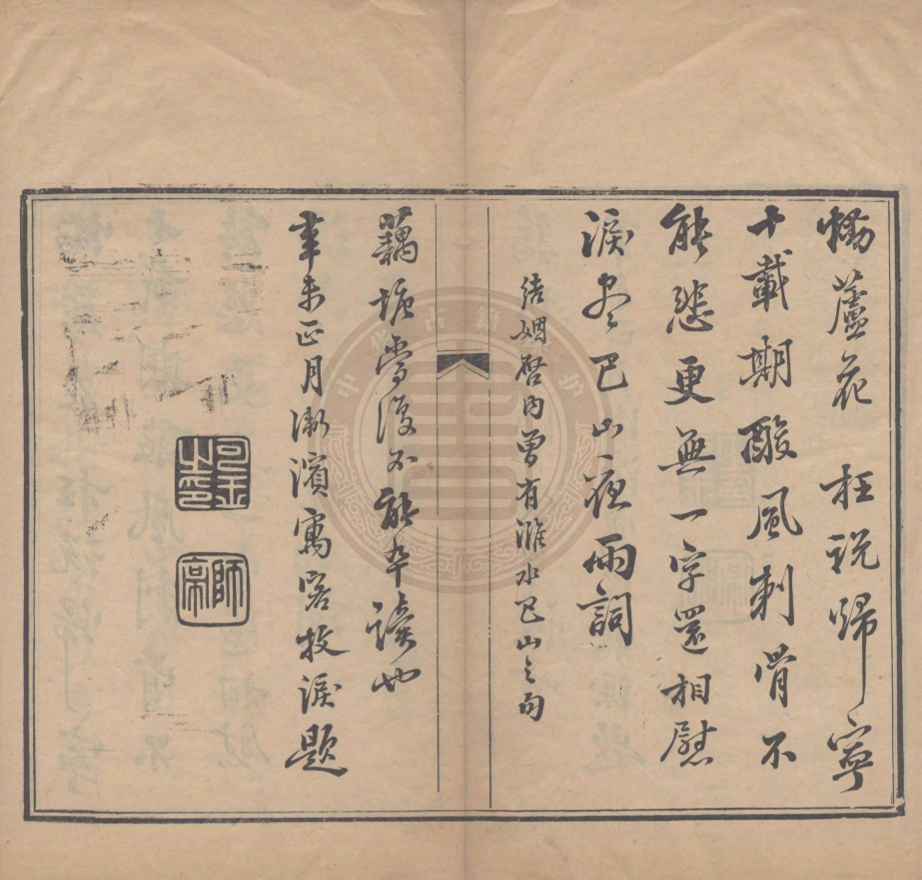 蘆花枉説歸寧
十載期酸風刺骨不
能悲更無一字還相慰
淚盡巴山夜雨詞
結姻啓内曾有濰水巴山之句
藕埏嘗復不能卒讀也
辛未正月漸濱寓客收淚題
師